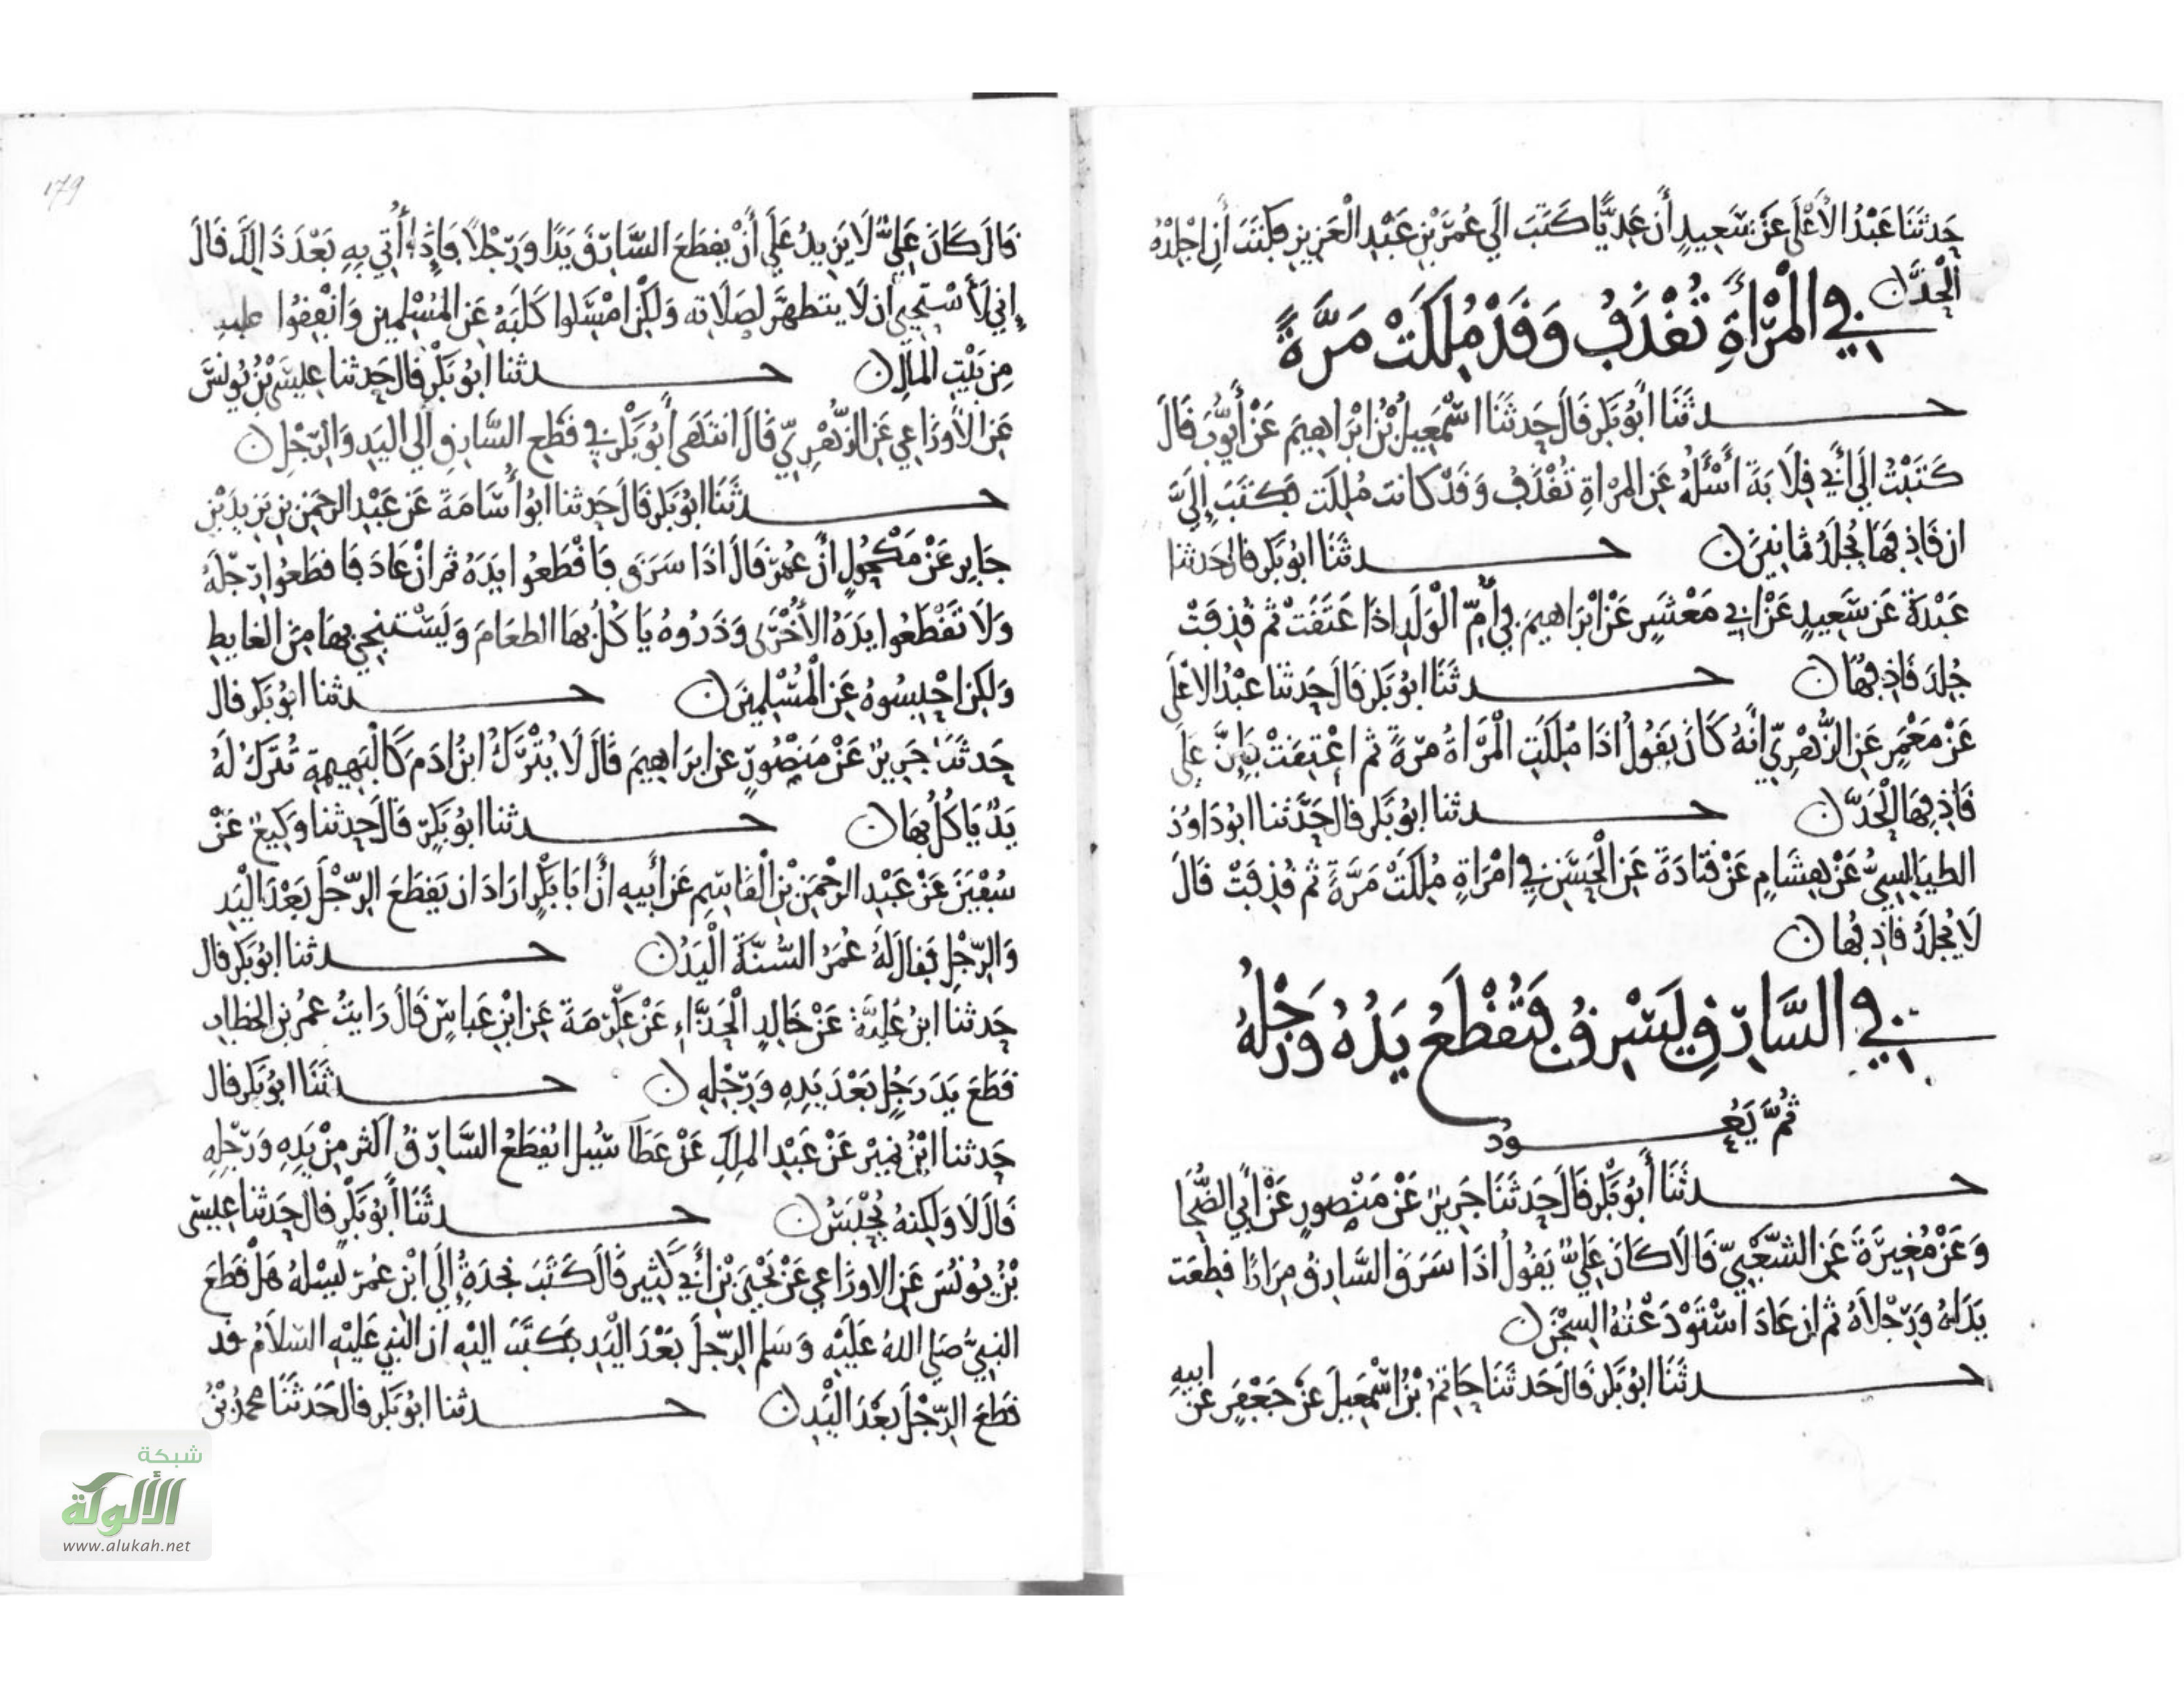 حَدثنَا عَبْدُ الأَعْلَى عَنْ سَعِيدٍ أَن عَدِيًّا كَتَبَ الَى عُمَرَ بْنِ عَبْدِ الْعَزِيزِ فَكَتَبَ أَنِ اجْلِدْهُ
الْحَدَّ ن
في الْمَرْأَةِ تُقْذَفُ وَقَدْ مُلِكَتْ مَرَّةً
حدثَنَا ابُو بَكْرٍ قَالَ حَدثَنَا اسْمَعِيلُ بْنُ ابْرَاهِيمَ عَنْ أَيُّوبَ قَالَ
كَتَبْتُ الَى أَبِي قِلَابَةَ أَسْأَلُهُ عَنِ المرْاةِ تُقْذَفُ وَقَدْ كانت مُلِكَت فكَتَبَ إِلَيَّ
ان قَاذِفَهَا يُجْلَدُ ثمانِينَ ن حدثَنَا ابُو بَكْرٍ قال حَدثنا
عَبْدَةُ عَنْ سَعِيدٍ عَنْ ابي مَعْشَرٍ عَنْ ابْرَاهِيمَ في أُمِّ الْوَلَدِ اذَا عَتَقَتْ ثم قُذِفَتْ
جُلِدَ قَاذِفُهَا ن حدثَنَا ابُو بَكْرٍ قَالَ حَدثنا عَبْدُ الاعْلَى
عَنْ مَعْمَرٍ عَنِ الزُّهْرِيِّ انَّهُ كَانَ يَقُولُ اذَا مُلِكَتِ الْمَرْاةُ مرّةً ثم اعْتِقَتْ فَإِنَّ عَلَى
قَاذِفِهَا الْحَدَّ ن حدثنا ابُو بَكْرٍ قال حَدَّثنا ابُو دَاوُدَ
الطيَالِسِيُّ عَنْ هِشَامٍ عَنْ قَتَادَةَ عَنِ الْحَسَنِ في امْرَاةٍ مُلِكَتْ مَرَّةً ثم قُذِفَتْ قَالَ
لَا يُجْلَدُ قاذِفُها ن
في السَّارِقِ يَسْرِقُ فَتُقْطَعُ يَدُهُ وَرِجْلُهُ
ثُمَّ يَعُودُ
حدثَنَا أَبُو بَكْرٍ قَالَ حَدثَنَا جَرِيرٌ عَنْ مَنْصُورٍ عَنْ أَبِي الضُّحَا
وَعَنْ مُغِيرَةَ عَنِ الشَّعْبِيِّ قَالَا كَانَ عَلِيٌّ يَقُولُ اذَا سَرَقَ السَّارِقُ مِرَارًا قطِعَت
يَدَاهُ وَرِجْلَاهُ ثم ان عَادَ اسْتَوْدَعْتُهُ السِّجْنَ ن
حدثَنَا ابُو بَكْرٍ قَالَ حَدثَنَا حَاتمُ بْنُ اسْمَعِيلَ عَنْ جَعْفَرٍ عَنْ ابيهِ
179
قَالَ كَانَ عَلِيٌّ لَا يَزِيدُ عَلَى أَنْ يقطَعَ السَّارِقَ يَدًا وَرِجْلًا فَإِذَا أُتِي بِهِ بَعْدَ ذَالِكَ قَالَ
إِنِي لَأَسْتحيي ان لَا يتطهَّرَ لصَلَاته وَلَكِن امْسكوا كَلَبَهُ عَنِ المُسْلِمين وَانْفِقُوا عليه
مِن بَيْتِ المالِ ن حدثنا ابُو بَكْرٍ قال حَدثنا عِيسَى بْنُ يُونُسَ
عَنِ الأَوزَاعِي عَنِ الزُّهْرِيِّ قَالَ انتَهَى أَبُو بَكْرٍ في قَطْعِ السَّارِقِ الَى اليَدِ وَالرِّجْلِ ن
حدثَنَا ابُو بَكْرٍ قَالَ حَدثنا ابُو أُسَامَةَ عَنْ عَبْدِ الرحْمَنِ بنِ يَزِيدَ بْنِ
جَابِرٍ عَنْ مَكْحُولٍ أَنَّ عُمَرَ قَالَ اذَا سَرَقَ فَاقْطَعُوا يَدَهُ ثم انْ عَادَ فَاقطَعُوا رِجْلَهُ
وَلَا تَقْطَعُوا يَدَهُ الأُخْرَى وَذَرُوهُ يَاكُلُ بهَا الطعَامَ وَيَسْتنجي بهَا مِنَ الغايطِ
وَلَكِن احْبِسُوهُ عَنِ الْمُسْلِمينَ ن حدثنا ابُو بَكْرٍ قال
حَدثَنَا جَرِيرٌ عَنْ مَنْصُورٍ عن ابرَاهِيمَ قَالَ لَا يُتْرَكُ ابنُ ادَمَ كَالْبَهِيمَةِ تُترَكُ لَهُ
يَدٌ يَاكُلُ بهَا ن حدثنا ابُو بَكْرٍ قَالَ حَدثنا وَكِيعٌ عَنْ
سُفْيَنَ عَنْ عَبْدِ الرحْمَنِ بْنِ الْقَاسِمِ عَنْ أَبِيهِ أَنَّ ابَا بَكْرٍ ارَادَ ان يَقطَعَ الرِّجْلَ بَعْدَ الْيَدِ
وَالرِّجْلِ فقَالَ لَهُ عُمَرُ السُّنَّةُ الْيَدُ ن حدثنا ابُو بَكْرٍ قال
حَدثنا ابنُ عُلَيَّةَ عَنْ خَالِدٍ الْحَذَّاءِ عَنْ عِكْرِمَةَ عَنِ ابْنِ عَباسٍ قَالَ رَايتُ عمُرَ بن الخطابِ
قَطَعَ يَدَ رَجُلٍ بَعْدَ يَدِهِ وَرِجْلِهِ ن حدثَنَا ابُو بَكْرٍ قال
حَدثنا ابْنُ نميْرٍ عَنْ عَبْدِ الملِكِ عَنْ عَطَا سُيل ايُقطَعُ السَّارِقُ اكثر مِنْ يَدِهِ وَرِجْلِهِ
قَالَ لَا وَلَكِنهُ يُحْبَسُ ن حدثَنَا أَبُو بَكْرٍ قال حَدثنا عِيسَى
بْنُ يُونُسَ عَنِ الاوزَاعِي عَنْ يَحْيَى بْنِ أَبِي كَثِيرٍ قَالَ كَتَبَ نَجْدَةُ إِلَى ابْنِ عُمَرَ يَسْلهُ هَلْ قطَعَ
النبيُّ صَلى اللهُ عَلَيْهِ وَسَلم الرِّجْلَ بَعْدَ الْيَدِ فكَتَبَ اليْهِ ان النبي عَلَيْهِ السلَامُ قد
قطَعَ الرِّجْلَ بعْدَ الْيَدِ ن حدثنا ابُو بَكْرٍ قال حَدثَنَا محمدُ بْنُ
شبكة
الألوكة
www.alukah.net